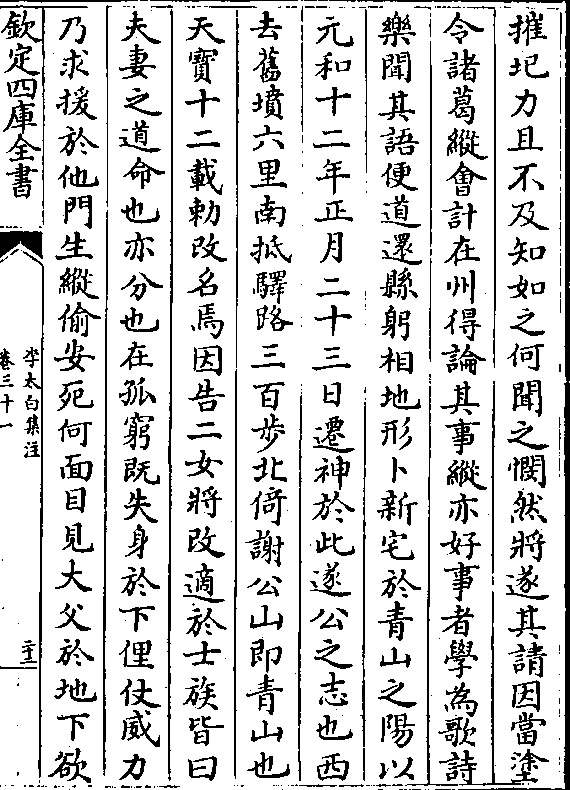 摧圮力且不及知如之何聞之憫然將遂其請因當塗
令諸葛縱會計在州得論其事縱亦好事者學為歌詩
樂聞其語便道還縣躬相地形卜新宅於青山之陽以
元和十二年正月二十三日遷神於此遂公之志也西
去舊墳六里南抵驛路三百步北倚謝公山即青山也
天寳十二載勅改名焉因告二女將改適於士族皆曰
夫妻之道命也亦分也在孤窮既失身於下俚仗威力
乃求援於他門生縱偷安死何面目見大父於地下欲
欽定四庫全書
李太白集注
卷三十一